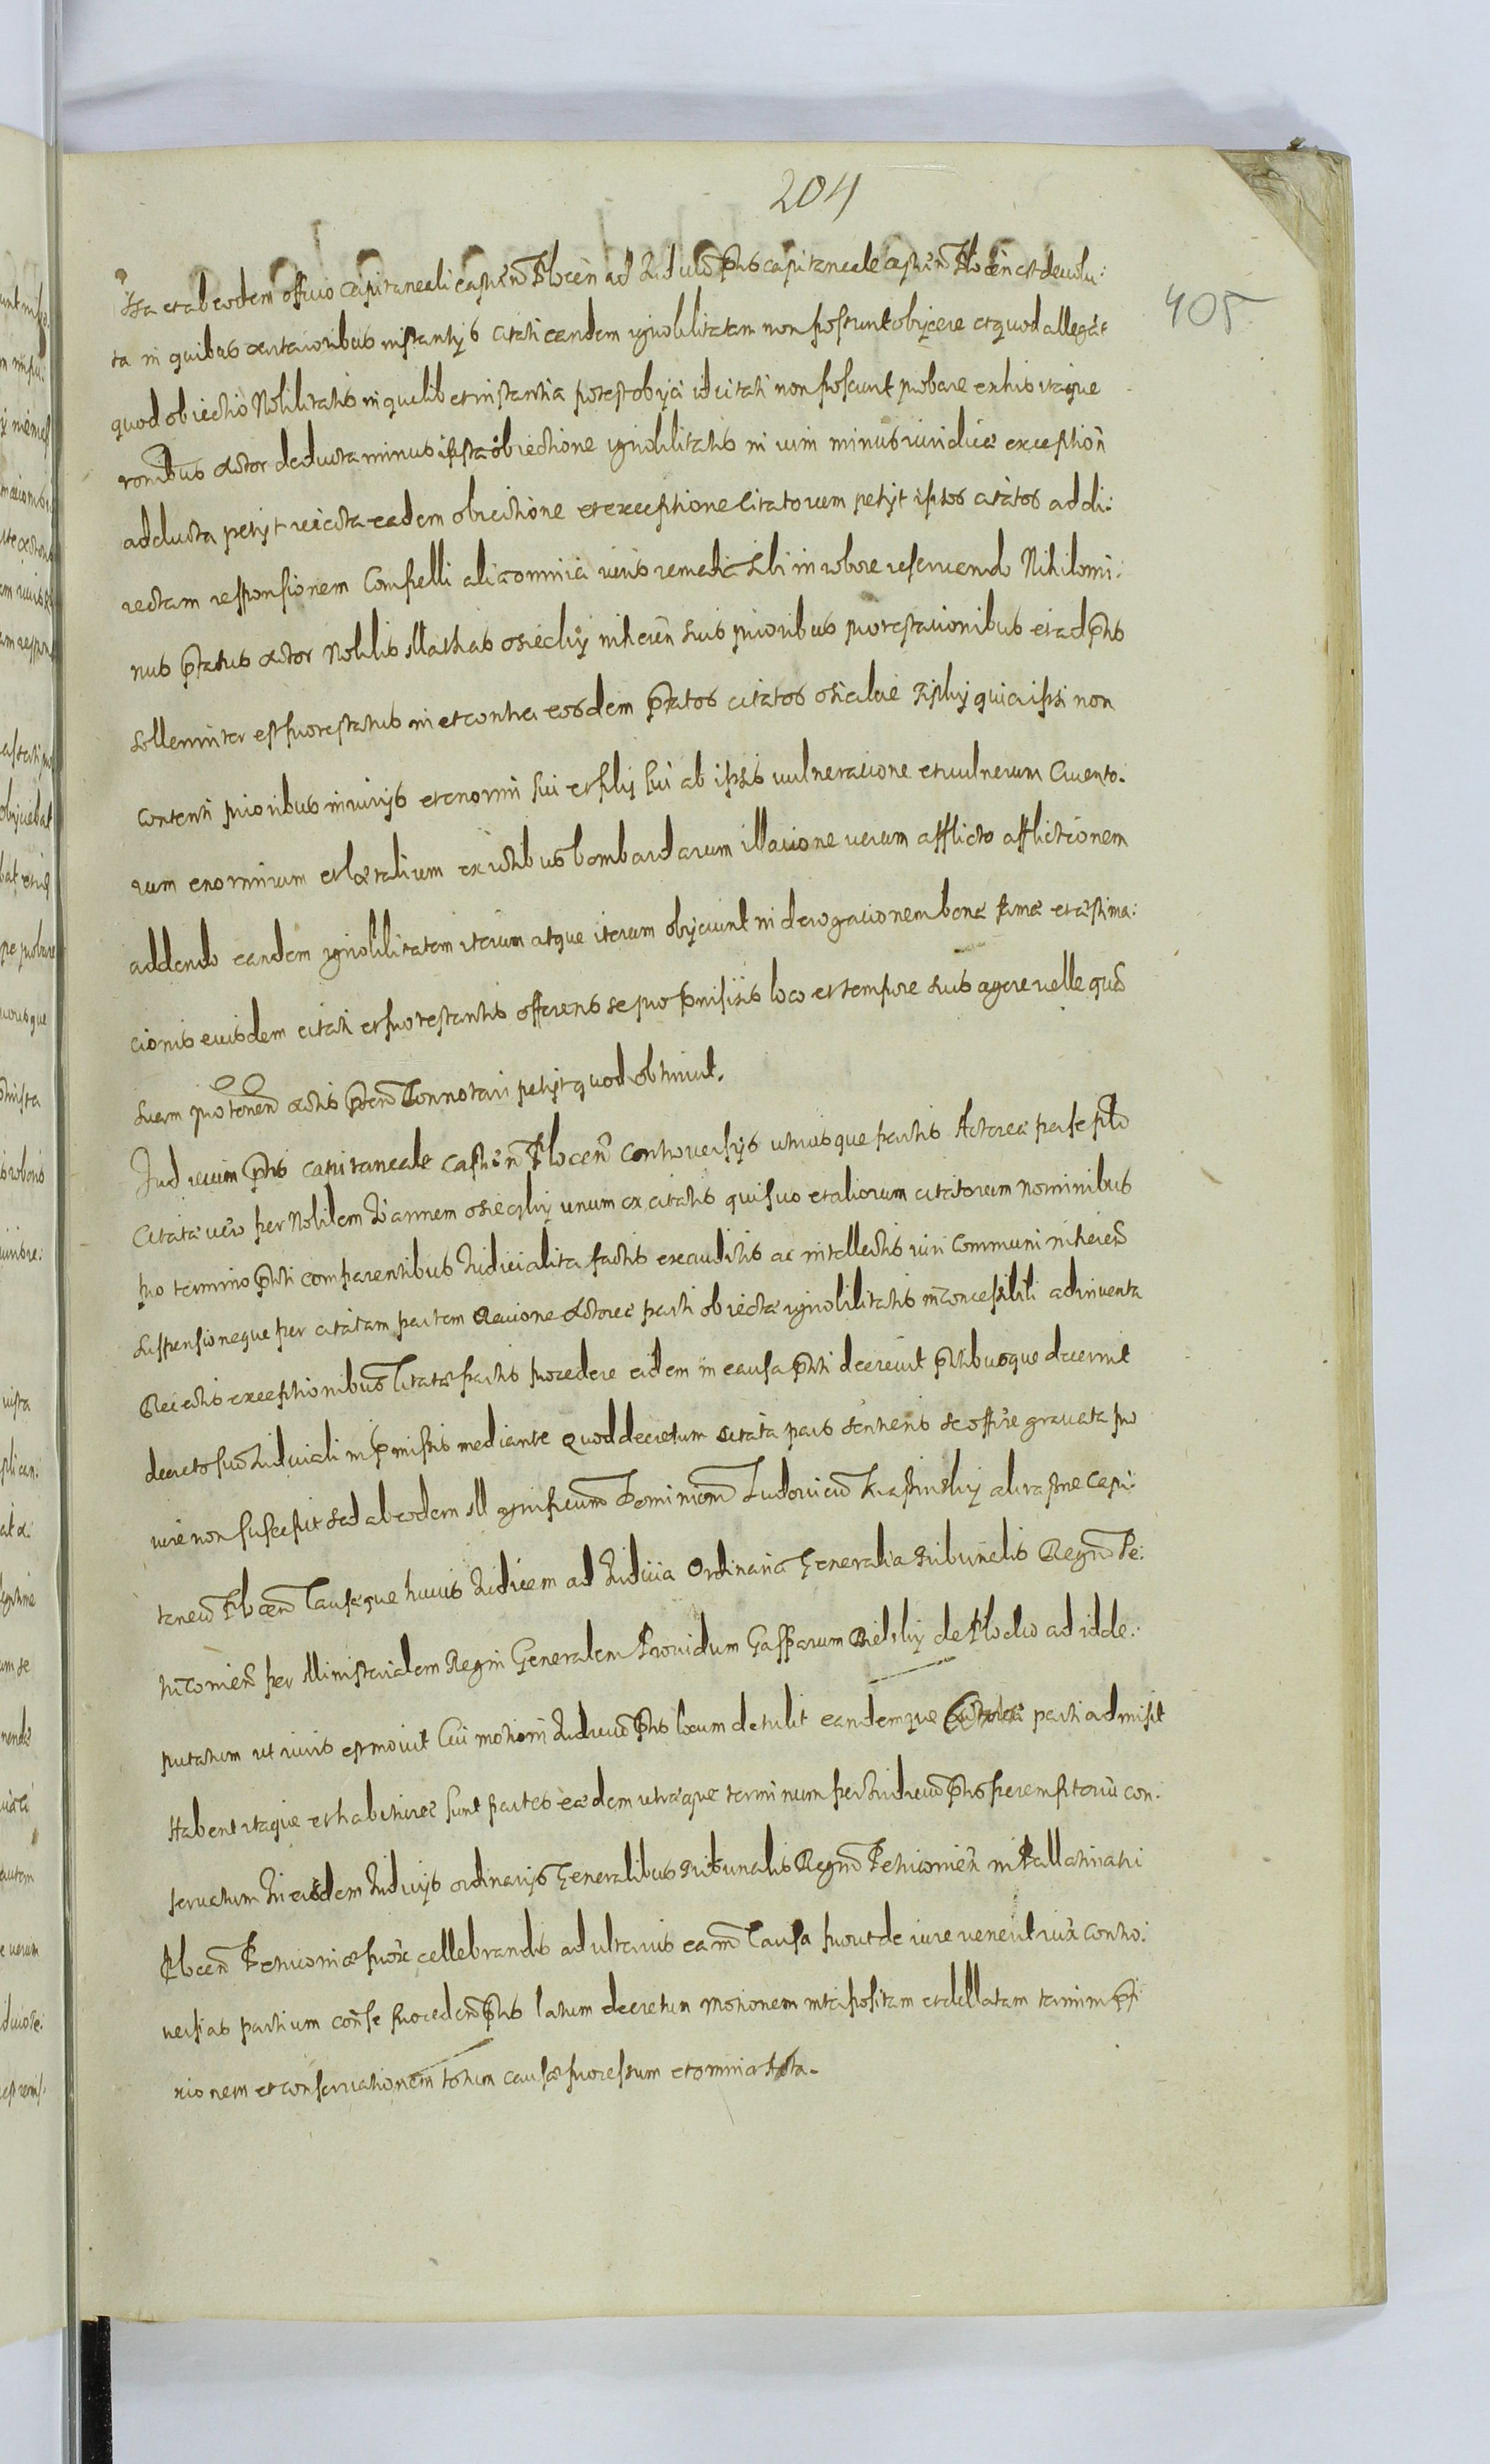 204
405
Ita et ab eodem officio capitaneali castren Plocen ad Judiciu pns capitaneale castren Plocen est devolu:
ta in quibus citati eandem ignobilitatem non possunt obijcere et quod allegat
quod obiectio Nobilitatis in quelibet instantia potest obijci id citati non possunt probare ex his itaque
ronibus Actor deductaminus iusta obiectione ignobilitatis in vim minus iuridicae exception
adducta petijt reiecta eadem obiectione et exceptione Citatorum petijt ipsos citatos ad di:
rectam responsionem Compelli alia omnia iuris remedia sibi in robore reservando Nihilomi:
nus Actor Nobilis Mathias osiechÿ inheren suis prioribus protestationibus et ad pns
solleniter est protestatus in et contra eosdem citatos quia ipsi non
contenti prioribus iniurijs et enormi sui et filij sui ab ipsis vulneratione et vulnerum Cruento.
rum enormium et laetalium ex ictibus bombardarum illatione verum afflicto afflictionem
addendo eandem ignobilitatem iterum atque iterum obijciunt in derogationem bonae famae et aestima:
cionis eiusdem citati et protestantis offerens se pro pmissis loco et tempore suo agere velle quā
suam actis Connotari petijt quod obtinuit.
Judicium pns capitaneale castren Plocen Controversijs utriusque partis Actoreae per se
Citatae vero per Nobilem Joannem osiechÿ unum ex citatis qui suo et aliorum citatorum nominibus
pro termino pnti comparentibus Judicialiter factis exauditis ac intellectis iuri Communi inheren
suspensioneque per citatam partem Racione Actoreae parti obiectae ignobilitatis inconcessibili adinventa
Reiectis exceptionibus Citatae partis procedere eidem in causa pnti decrevit pntibusque decernit
decreto suo Judiciali in pmissis mediante Quod decretum citata pars sentiens se gravata pro
iure non suscepit sed ab eodem Mgnificum Dominum Ludovicu Krasinskÿ
taneu Plocen Causaeque huius Judicem ad Judicia Ordinaria Generalia Tribunalis Regni Pe:
tricovien per Ministerialem Regni Generalem Providum Gasparum Bielskÿ de Plocko ad id de:
putatum ut iuris est movit Cui motioni Judiciu pns locum detulit eandemque parti admisit
Habent itaque et habiturae sunt partes eaedem utraeque terminum per Judiciu pns peremptoriu con:
servatum In eisdem Judicijs ordinarijs Generalibus Tribunalis Regni Petricovien in Pallatinatu
Plocen Petricoviae prox cellebrandis ad ulterius eam Causa prout de iure venerit iux contro:
versias partium pns latum decretum Motionem interpositam et dellatam termini
xionem et conservationem totum causae processum et omnia Acta.